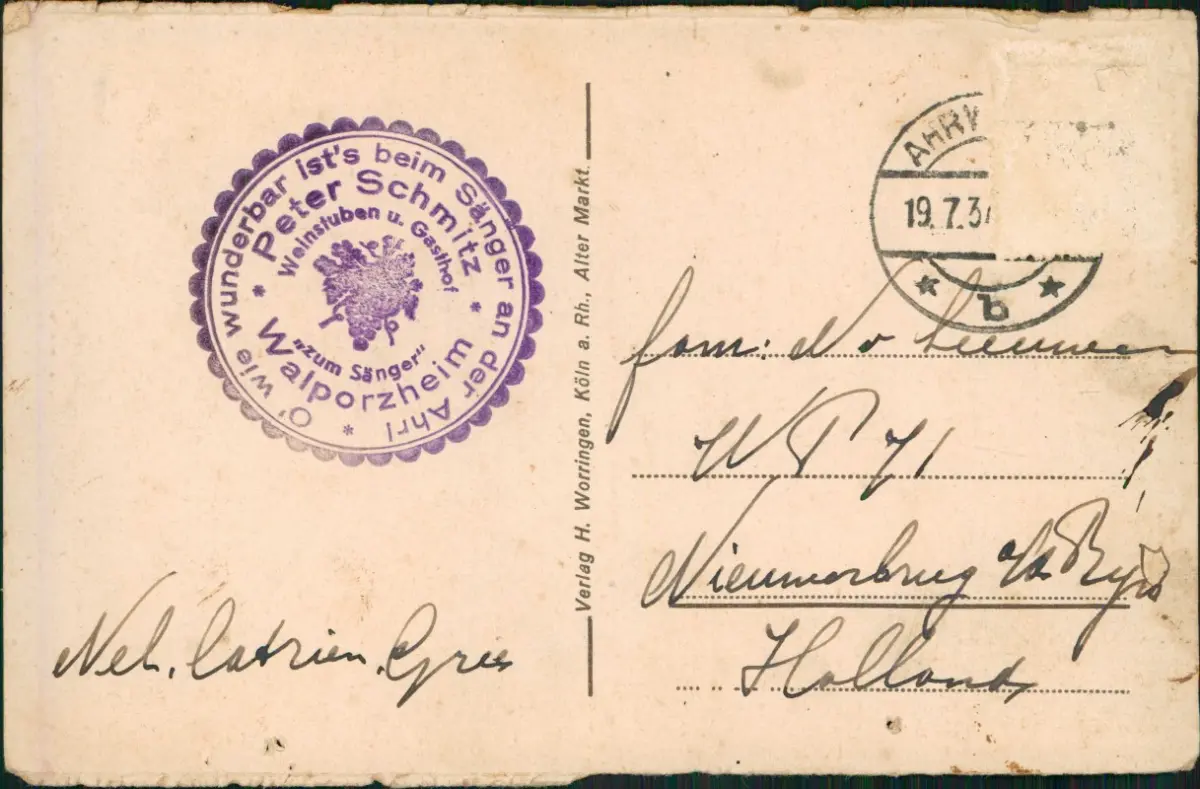 O' wie wunderbar ist's beim Sänger an der Ahr!
Peter Schmitz
Weinstuben u. Gasthof
"zum Sänger"
* Walporzheim *
*
Nel. Catrien. Gree
Verlag H. Worringen, Köln a. Rh., Alter Markt.
AHRW
19.7.3
* b *
fam: N v Leeuwen
WP 71
Nieuwerbrug a/d Rijn
Holland